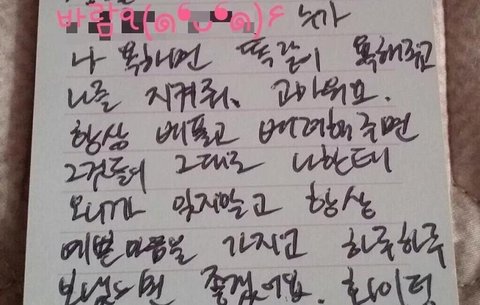 바람 누가
나 욕하면 똑같이 욕해주고
나를 지켜줘. 고마워요.
항상 베풀고 배려해주면
그것들이 그대로
오니까 잊지말고 항상
예쁜마음을 가지고 하루하루
보냈으면 좋겠어요.